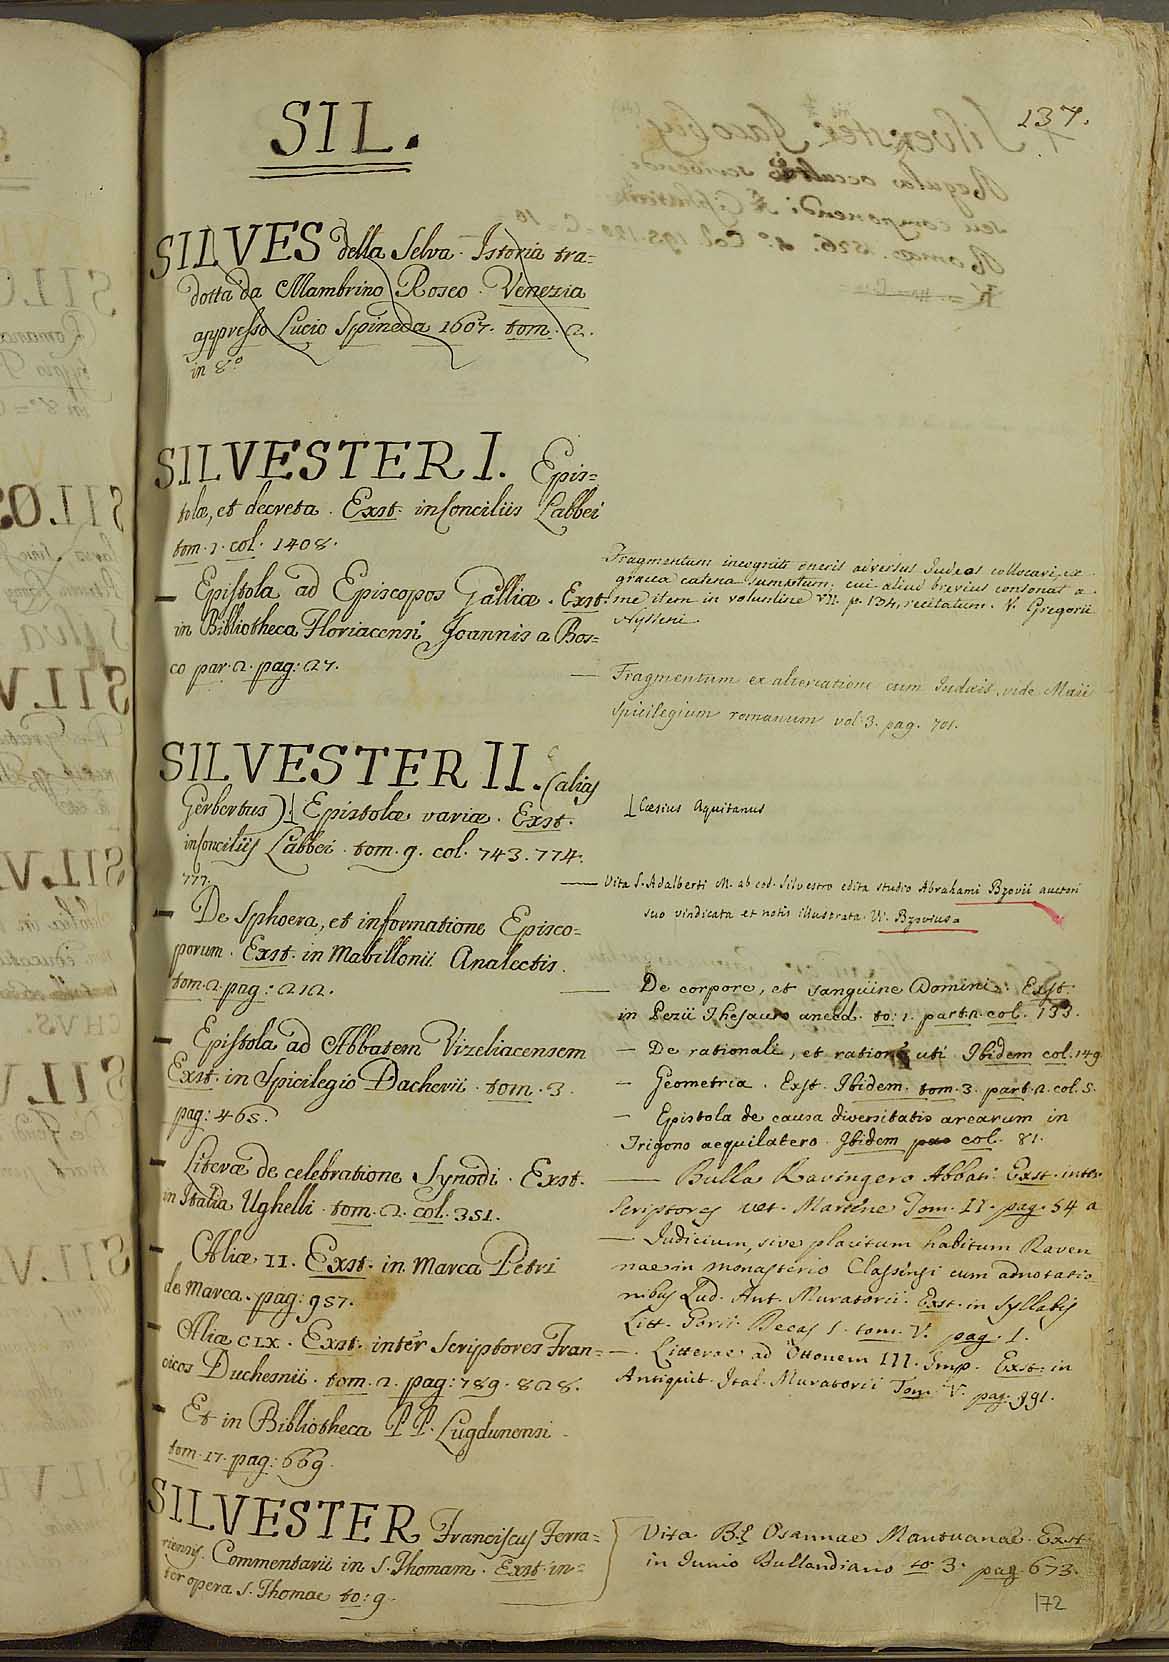 137.
SIL.
SILVES della Selva. Istoria tra=
dotta da Mambrino Roseo. Venezia
appresso Lucio Spineda 1607. tom. 2.
in 8.o
SILVESTER I. Epis=
tolæ, et decreta. Exst. in Conciliis Labbei
tom. 1. col. 1408.
— Epistola ad Episcopos Galliæ. Exst.
in Bibliotheca Floriacensi Joannis a Bos=
co par. 2. pag: 27.
SILVESTER II. (alias
Gerbertus) ⊥ Epistolæ variæ. Exst.
in Conciliis Labbei. tom. 9. col. 743. 774.
777.
— De Sphoera, et informatione Episco=
porum. Exst. in Mabillonii Analectis.
tom. 2. pag: 212.
— Epistola ad Abbatem Vizeliacensem
Exst. in Spicilegio Dacherii. tom. 3.
pag: 465.
— Literæ de celebratione Synodi. Exst.
in Italia Ughelli. tom. 2. col. 351.
— Aliæ II. Exst. in Marca Petri
de Marca. pag: 957.
— Aliæ CLX. Exst. inter Scriptores Fran=
cicos Duchesnii. tom. 2. pag: 789. 828.
— Et in Bibliotheca PP. Lugdunensi.
tom. 17. pag: 669.
SILVESTER Franciscus Ferra=
riensis. Commentarii in S. Thomam. Exst. in=
ter opera S. Thomae to: 9.
Fragmentum incogniti operis adversus Judeos collocavi, ex
graeca catena sumptum: cui aliud brevius consonat a
me item in volumine VII. p. 134. recitatum. V. Gregorii
Nysseni.
— Fragmentum ex altercatione cum Judaeis, vide Maii
Spicilegium romanum vol. 3. pag. 701.
⊥ Cæsius Aquitanus
— Vita S. Adalberti M. ab eod. Silvestro edita studio Abrahami Bzovii auctori
suo vindicata et notis illustrata. V. Bzovius
— De corpore, et sanguine Domini. Exst.
in Pezii Thesauro anecd. to: 1. part. 2. col. 133.
— De rationali, et ratione uti Ibidem col. 149
— Geometria. Exst. Ibidem. tom. 3. part. 2. col. 5.
— Epistola de causa diversitatis arearum in
Trigono aequilatero. Ibidem col. 81.
— Bulla Ravingero Abbati Exst. inter
Scriptores vet. Martene Tom. II. pag. 54 a
— Judicium, sive placitum habitum Raven
nae in monasterio Classensi cum adnotatio
nibus Lud. Ant. Muratorii. Exst. in Syllabis
Litt. Gorii. Decas I. tom. V. pag. 1.
— Litterae ad Ottonem III. Imp. Exst. in
Antiquit. Ital. Muratorii Tom. V. pag. 991.
Vita B.æ Osannae Mantuanae. Exst.
in Junio Bullandiano to. 3. pag. 673.
172